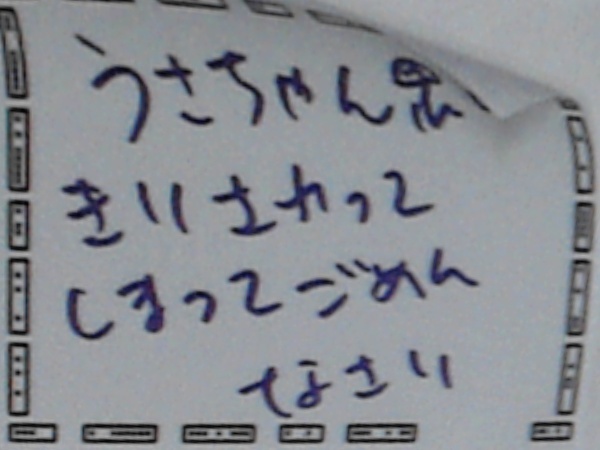 うさちゃん思
きりさわって
しまってごめん
なさい